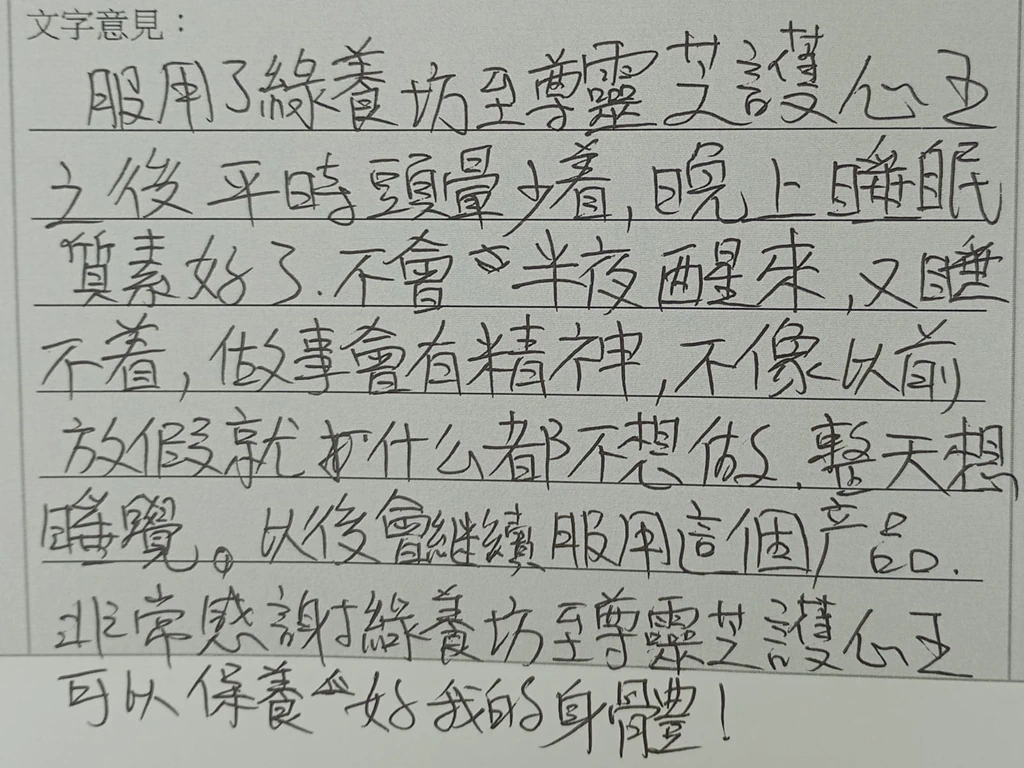 文字意見：
服用了綠養坊至尊靈芝護心王
之後平時頭暈少着,晚上睡眠
質素好了.不會半夜醒來,又睡
不着,做事會有精神,不像以前
放假就什么都不想做.整天想
睡覺。以後會継續服用這個产品.
非常感謝綠養坊至尊靈芝護心王
可以保養好我的身體!